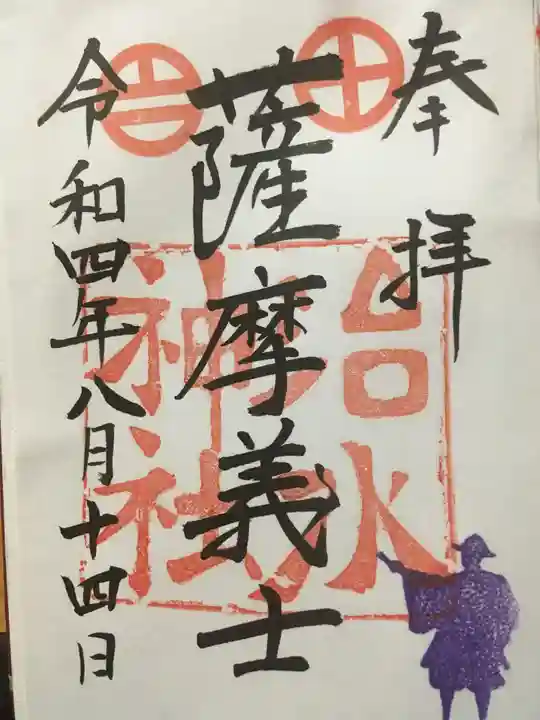 奉拝
薩摩義士
令和四年八月十四日
治水神社